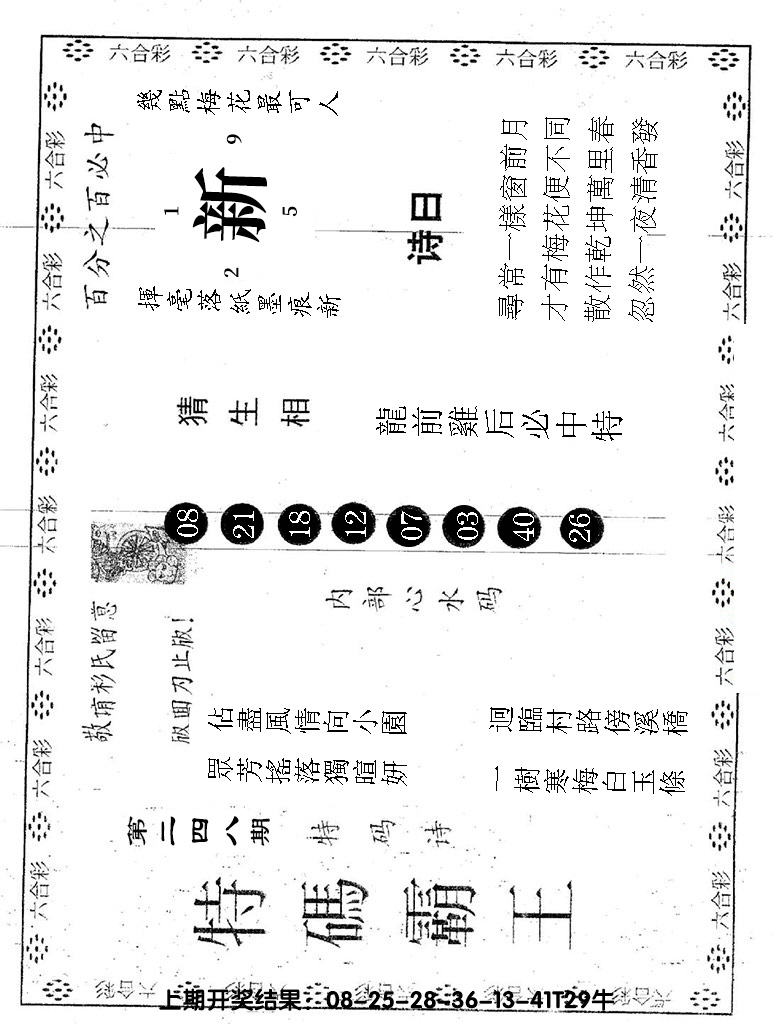 六合彩 六合彩 六合彩 六合彩 六合彩
特碼霸王
第二四八期
特码诗
眾芳搖落獨暄妍
佔盡風情向小園
一樹寒梅白玉條
迴臨村路傍溪橋
版面为止版!
内部心水码
08 21 18 12 07 03 40 26
猜生相
龍前雞后必中特
百分之百必中
揮毫落紙墨痕新
幾點梅花最可人
新
1 9
2 5
诗曰
尋常一樣窗前月
才有梅花便不同
散作乾坤萬里春
忽然一夜清香發
上期开奖结果：08-25-28-36-13-41T29牛